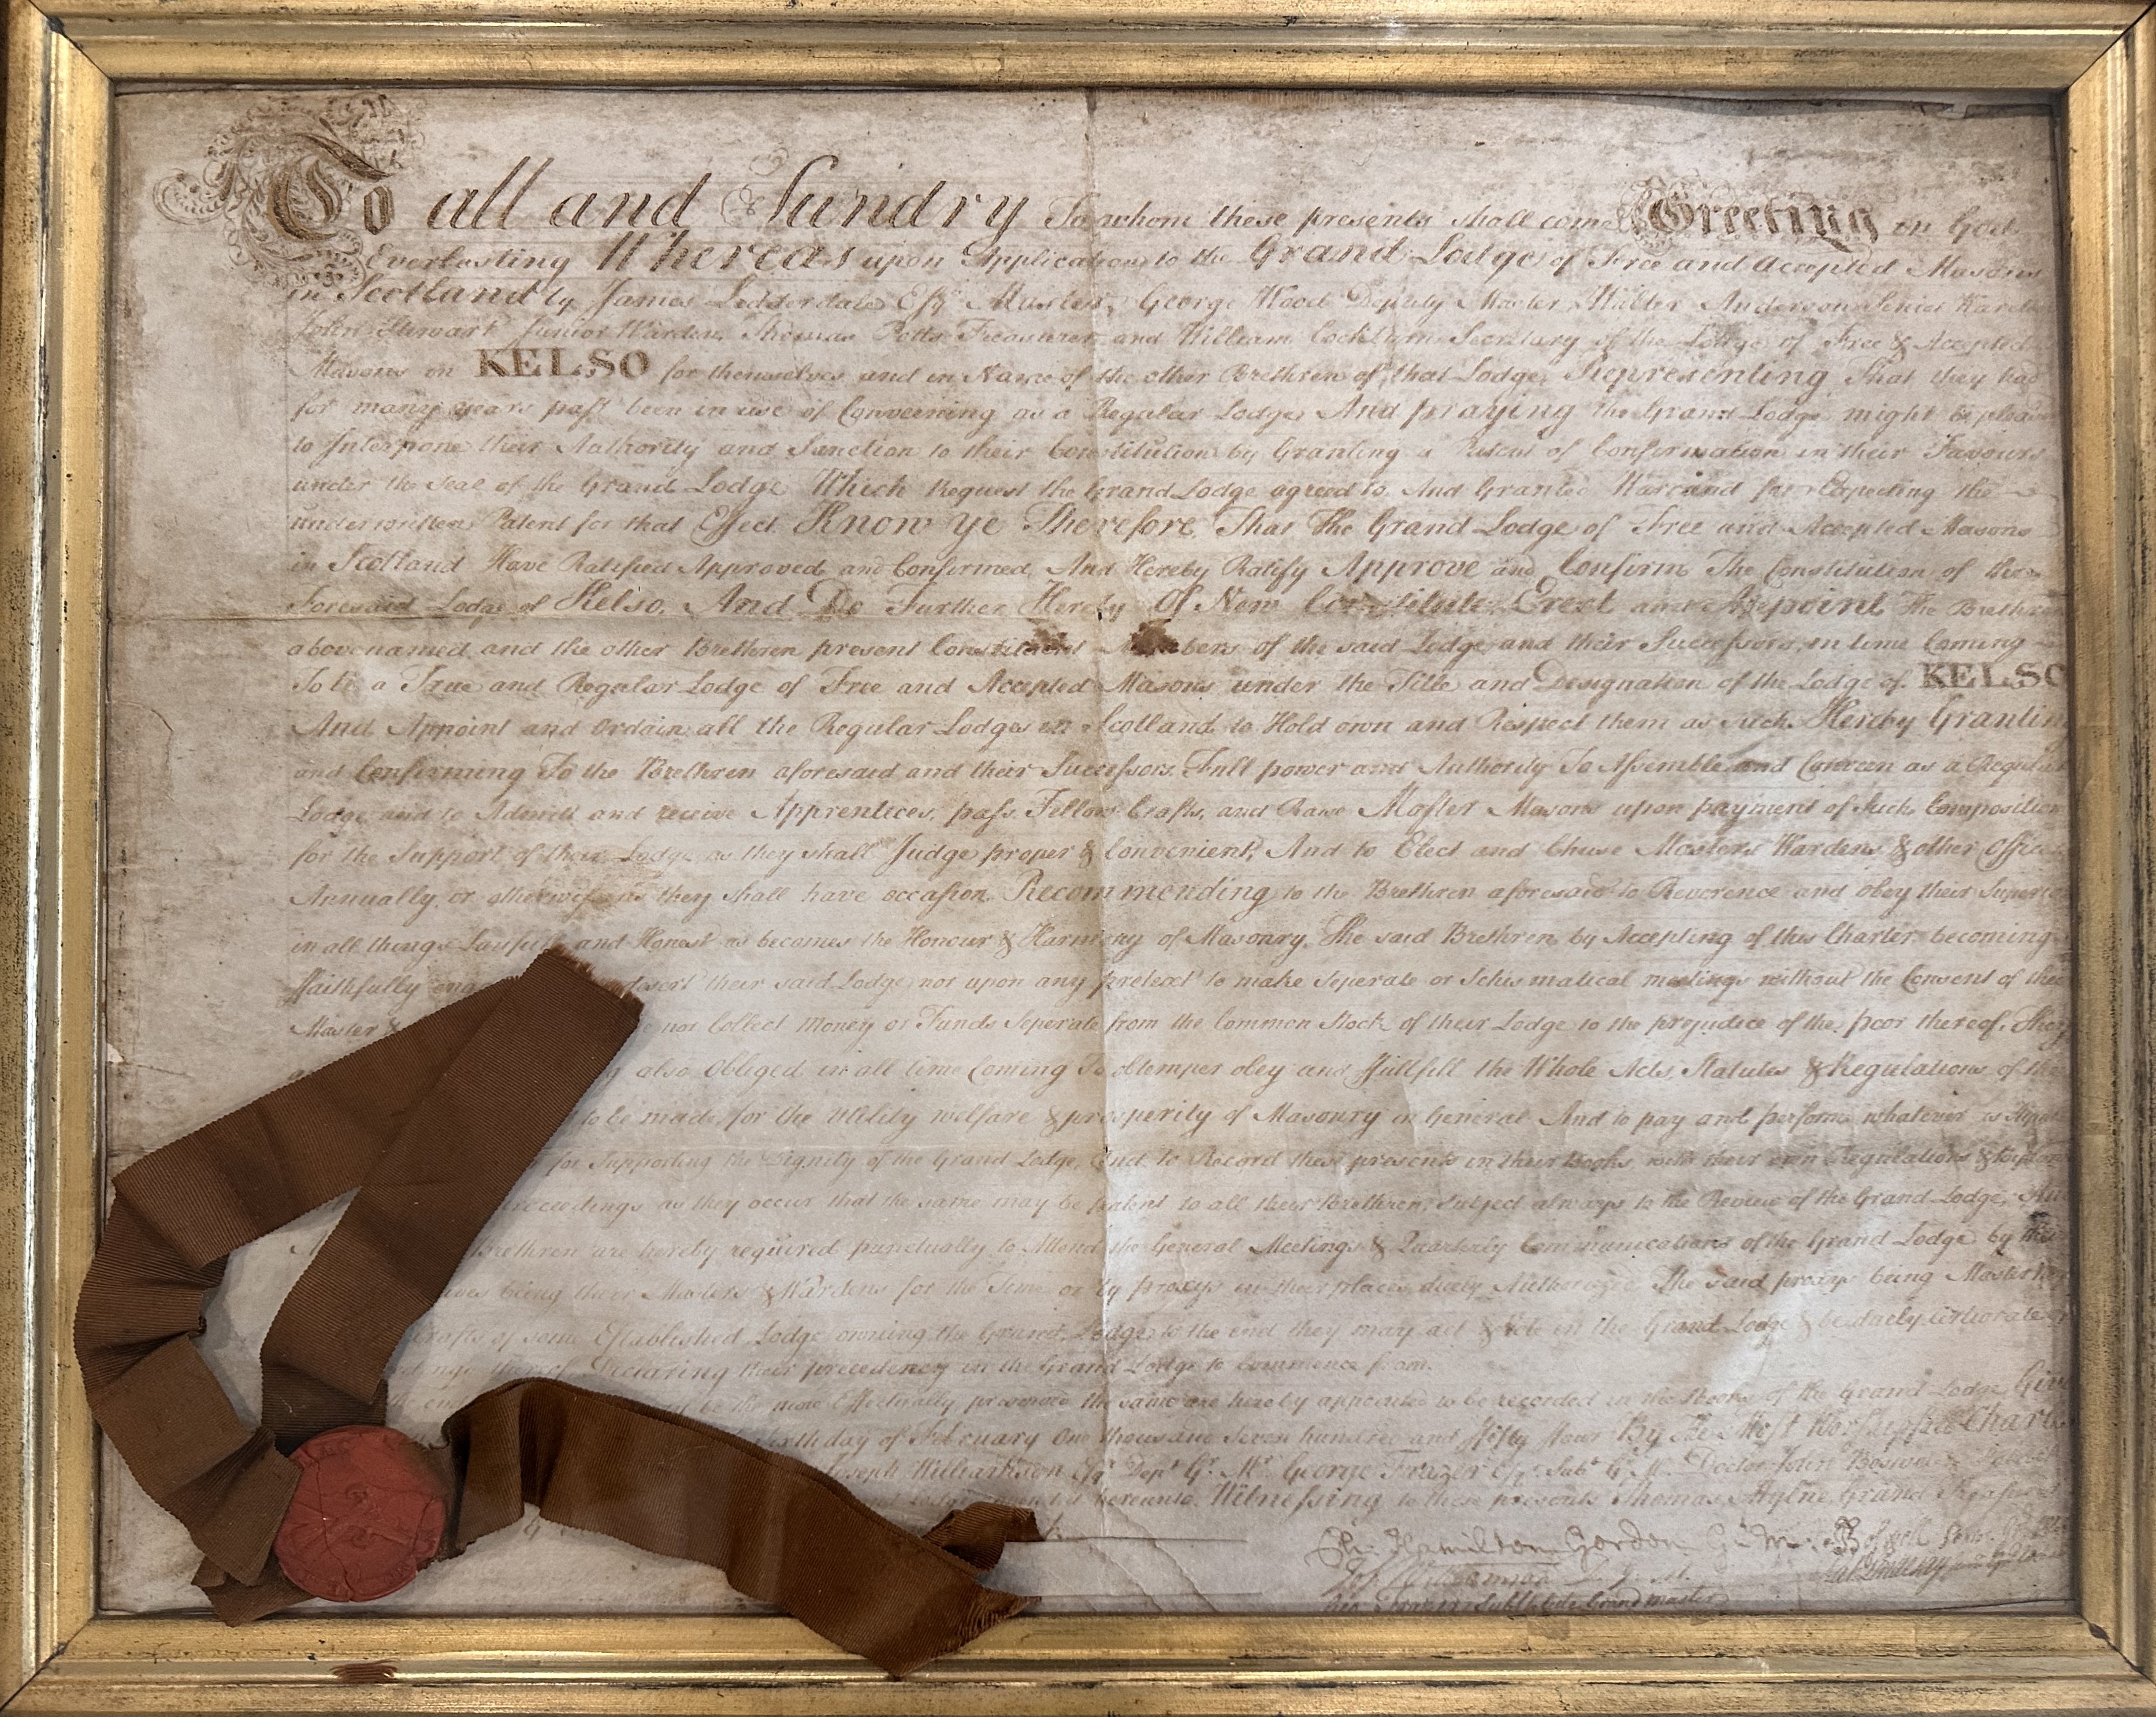 To all and Sundry To whom these presents shall come Greeting in God
Everlasting Whereas upon Application to the Grand Lodge of Free and Accepted Masons
in Scotland by James Lidderdale Esqr Master, George Wood Deputy Master Walter Anderson Senior Warden
John Stewart Junior Warden, Thomas Potts Treasurer and William Cockburn Secretary of the Lodge of Free & Accepted
Masons in KELSO for themselves and in Name of the other Brethren of that Lodge, Representing That they had
for many years past been in use of Conveening as a Regular Lodge And praying the Grand Lodge might be
to Interpone their Authority and Sanction to their Constitution by Granting a Patent of Confirmation in their Favours
under the Seal of the Grand Lodge Which Request the Grand Lodge agreed to And Granted Warrand for Expeding the
underwritten Patent for that Effect Know ye Therefore, That The Grand Lodge of Free and Accepted Masons
in Scotland Have Ratified Approved and Confirmed, And Hereby Ratify Approve and Confirm The Constitution of the
Foresaid Lodge of Kelso, And Do Further Hereby Of New Constitute, Erect and Appoint The
abovenamed and the other Brethren present Constituent Members of the said Lodge and their Successors, in time Coming
To be a True and Regular Lodge of Free and Accepted Masons under the Title and Designation of the Lodge of KELSO
And Appoint and Ordain all the Regular Lodges in Scotland to Hold own and Respect them as Such. Hereby
and Confirming To the Brethren aforesaid and their Successors Full power and Authority To Assemble and Conveen as a
Lodge and to Admitt and receive Apprentices, pass Fellow Crafts, and Raise Master Masons upon payment of Such Composition
for the Support of their Lodge as they shall Judge proper & Convenient, And to Elect and Chuse Masters Wardens & other
Annually, or otherwise as they shall have occasion Recommending to the Brethren aforesaid to Reverence and obey their
in all things Lawfull and Honest as becomes the Honour & Harmony of Masonry, The said Brethren by Accepting of this Charter becoming
ffaithfully desert their said Lodge nor upon any pretext to make Seperate or Schismatical meetings without the Consent of
Master & nor Collect Money or Funds Seperate from the Common Stock of their Lodge to the prejudice of the poor thereof, They
also Obliged in all time Coming To obtemper obey and ffullfill the Whole Acts, Statutes & Regulations of the
to be made, for the Utility welfare & prosperity of Masonry in General And to pay and perform whatever is
for Supporting the Dignity of the Grand Lodge, And to Record these presents in their Books, with their own Regulations &
proceedings as they occur that the same may be patent to all their Brethren, Subject always to the Review of the Grand Lodge,
Brethren are hereby required punctually to Attend the General Meetings & Quarterly Communications of the Grand Lodge by
being their Masters & Wardens for the Time or by proxys in their places duely Authorized The said proxys being Master
Crafts of some Established Lodge owning the Grand Lodge, to the end they may act & Vote in the Grand Lodge & be duely
thereof Declaring their precedency in the Grand Lodge to Commence from
be the more Effectually preserved the same are hereby appointed to be recorded in the Books of the Grand Lodge
day of February One thousand Seven hundred and ffifty ffour By The Most Worshipfull
Joseph Williamson Esqr Dept Gr. Mr George Frazer Esqr Subt G. M. Doctor John
hereunto, Witnessing to these presents Thomas Mylne Grand
Ch: Hamilton Gordon G: M:
Jos: Williamson D. G. M.
Geo: Frazer Substitute Grand master